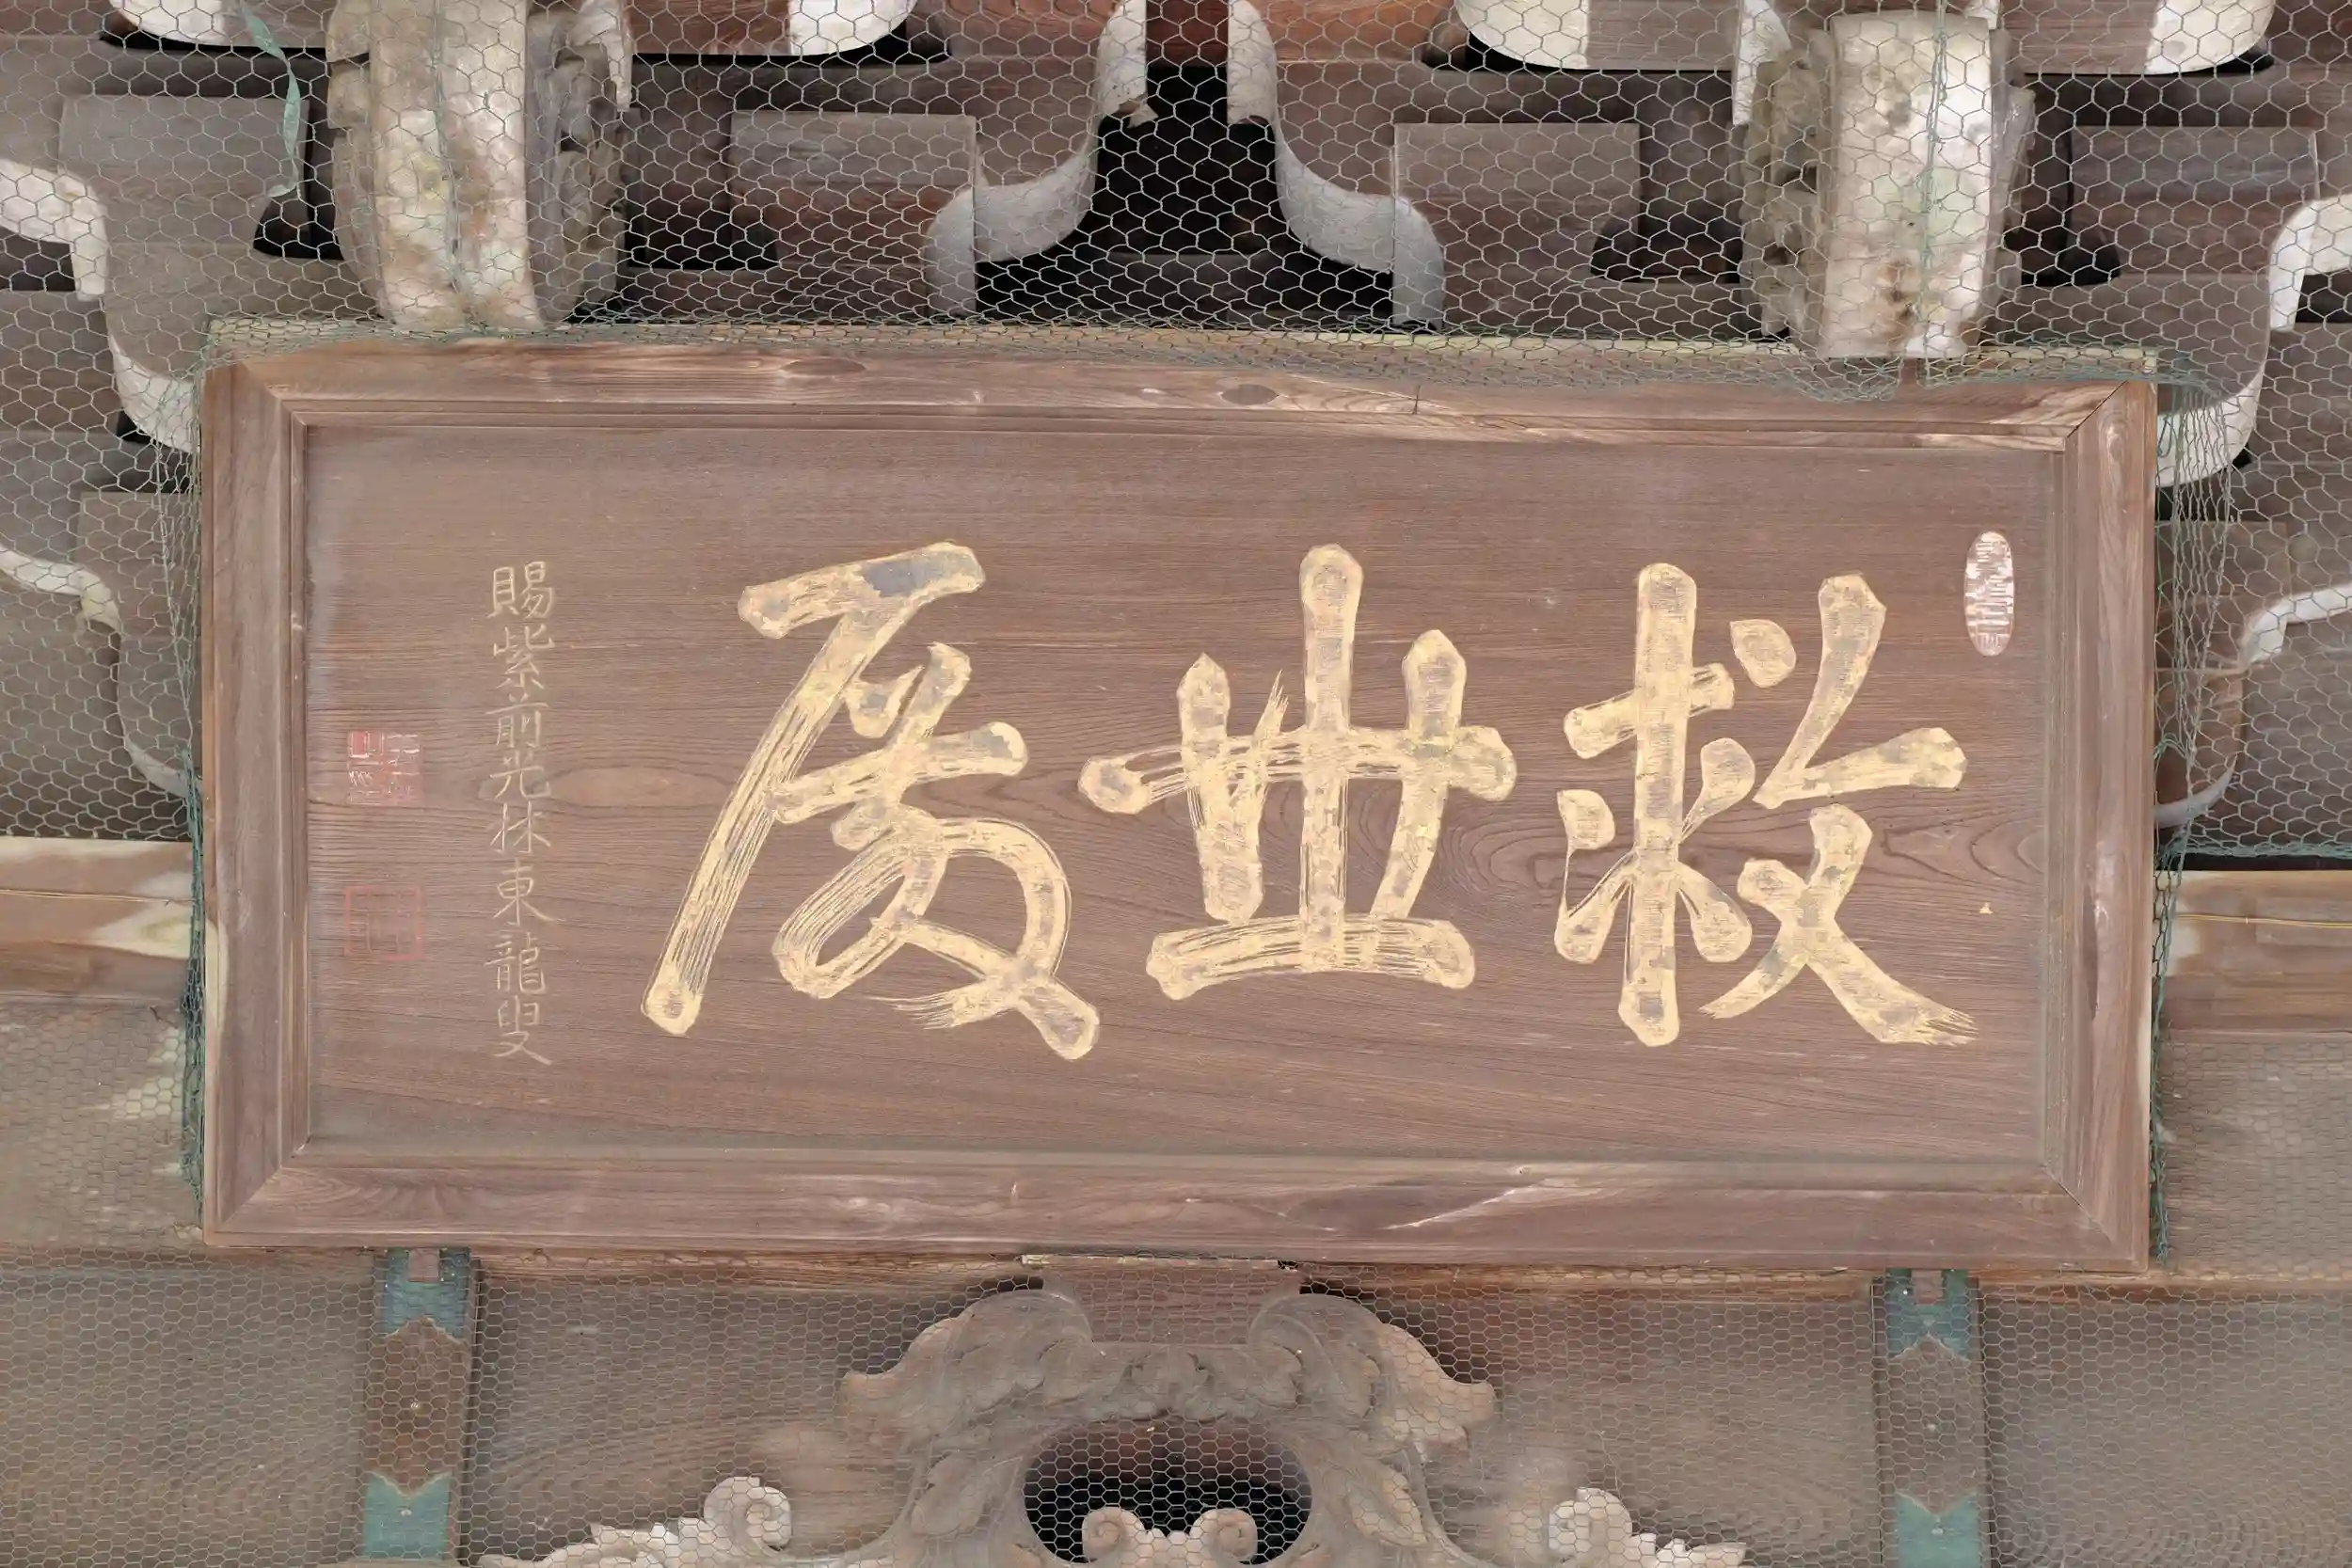 救世厦
賜紫前光林東龍叟